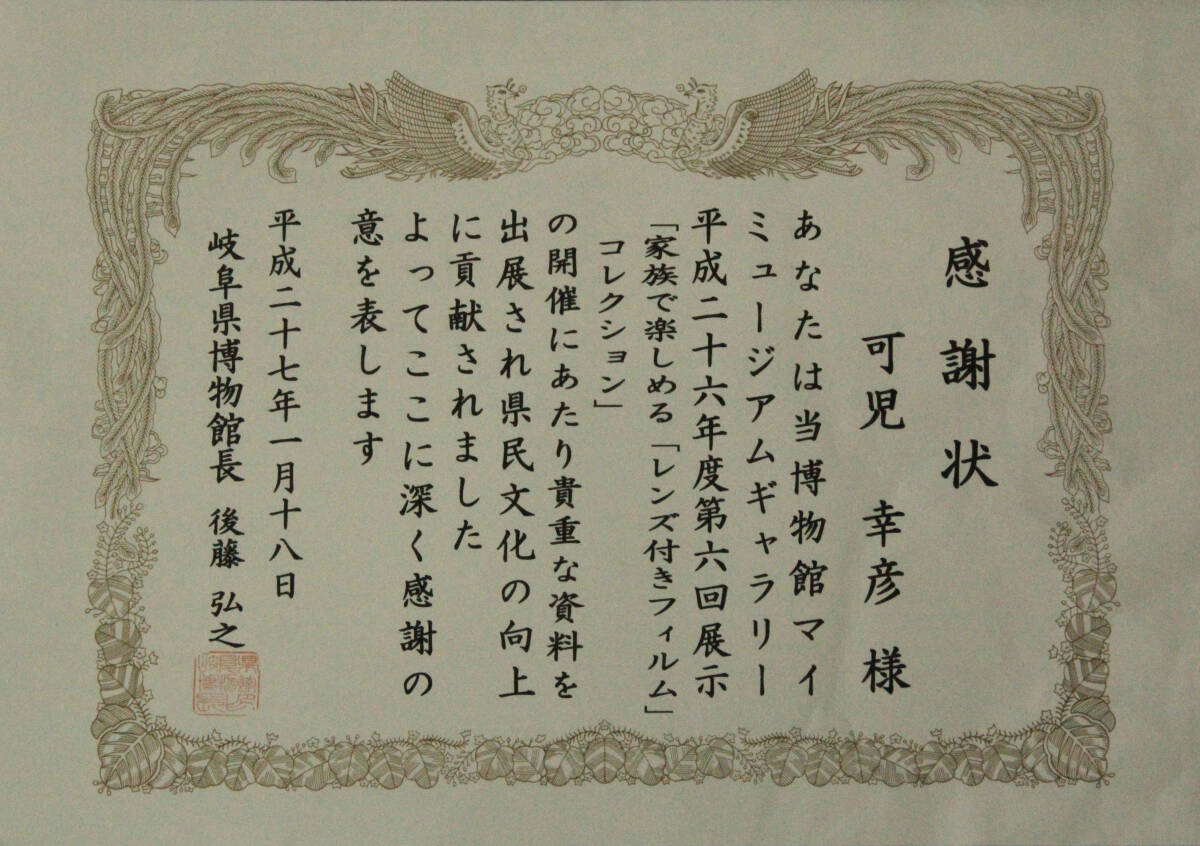 感謝状
可児 幸彦 様
あなたは当博物館マイ
ミュージアムギャラリー
平成二十六年度第六回展示
「家族で楽しめる「レンズ付きフィルム」
コレクション」
の開催にあたり貴重な資料を
出展され県民文化の向上
に貢献されました
よってここに深く感謝の
意を表します
平成二十七年一月十八日
岐阜県博物館長 後藤 弘之